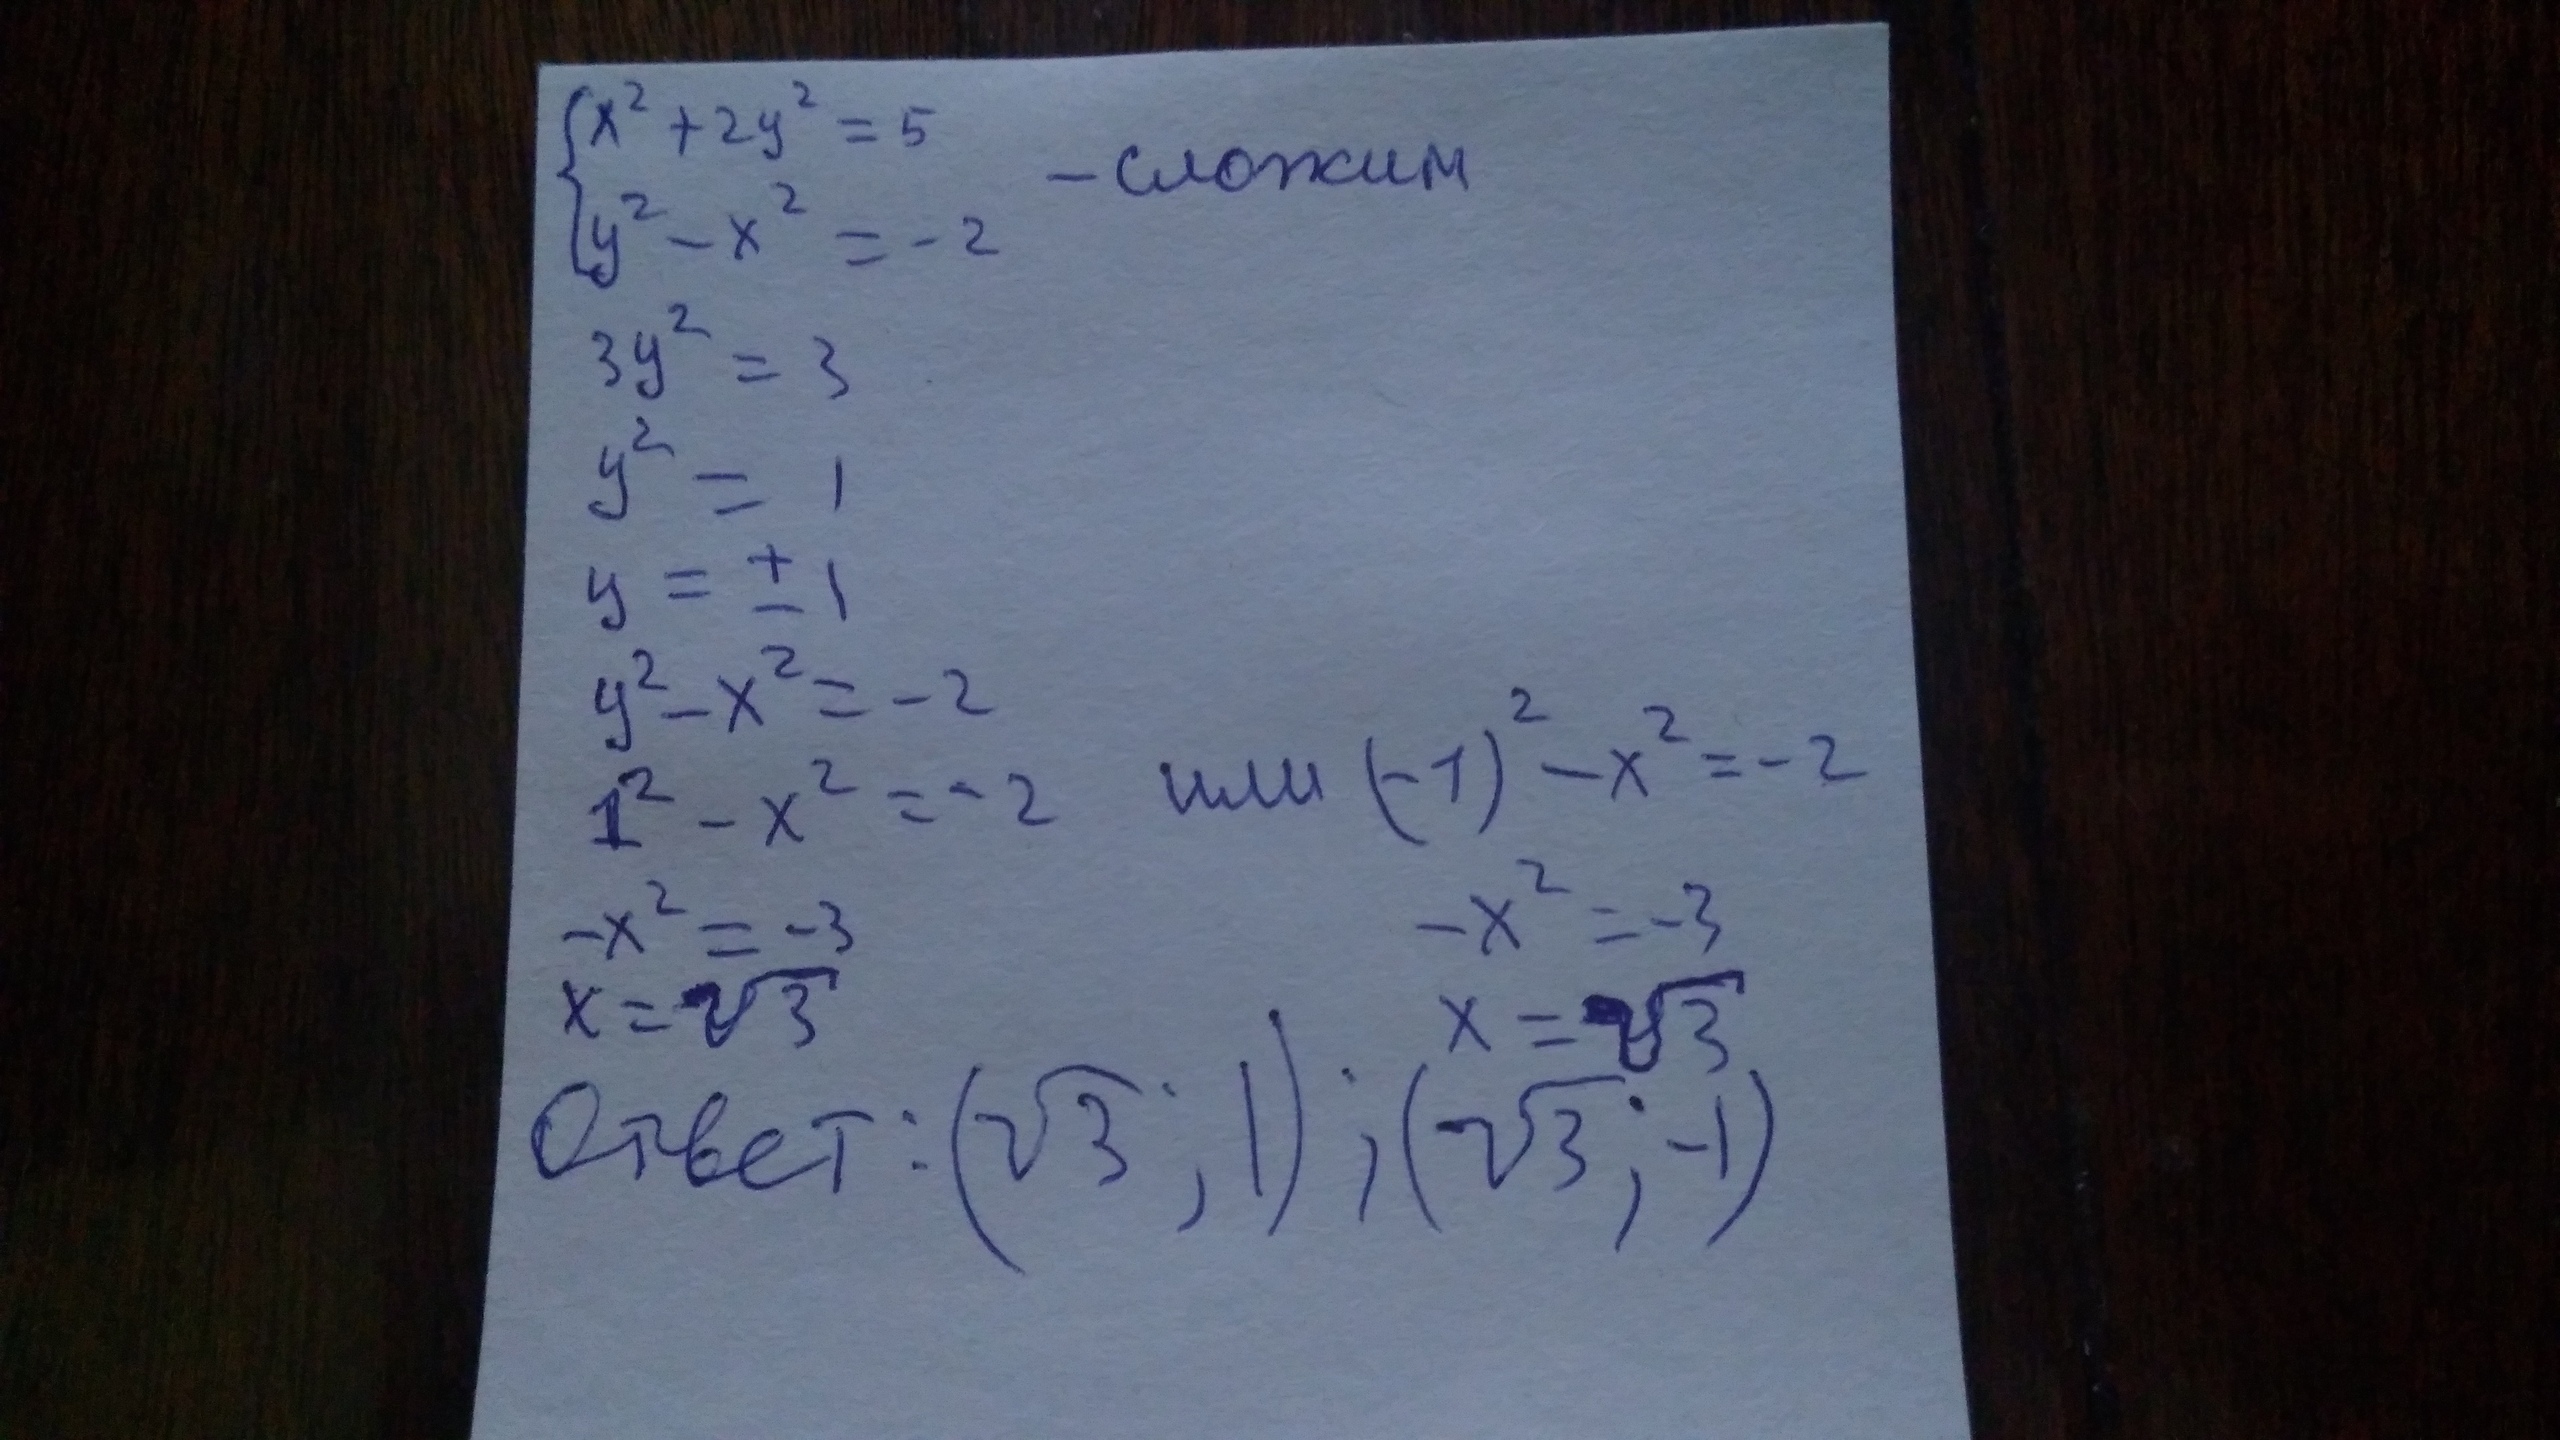 {x² + 2y² = 5
y² - x² = -2 - сложим
3y² = 3
y² = 1
y = ±1
y² - x² = -2
1² - x² = -2 или (-1)² - x² = -2
-x² = -3 -x² = -3
x = √3 x = √3
Ответ: (√3; 1); (√3; -1)